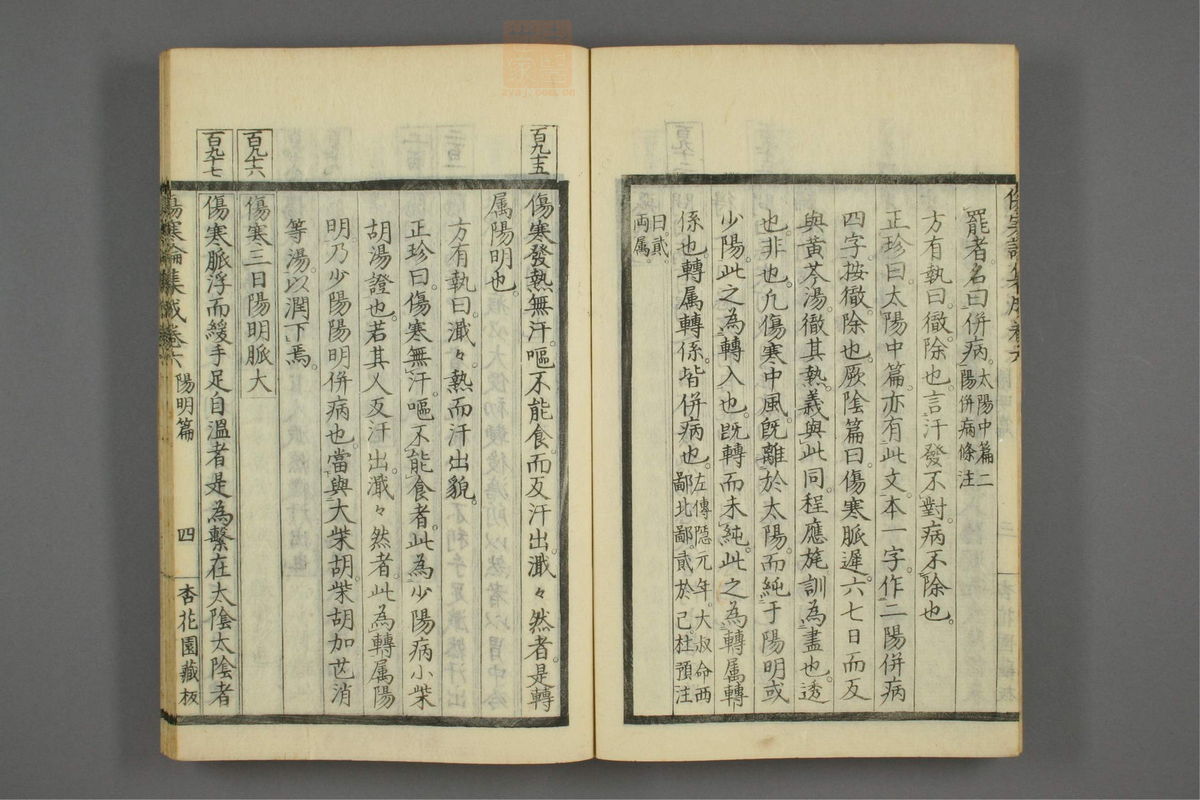 罷者名曰併病。太陽中篇二
陽併病條注
方有執曰。徹除也。言汗發不對病不除也。
正珍曰。太陽中篇。亦有此文。本一字。作二陽併病
四字。按徹。除也。厥陰篇曰。傷寒脈遲。六七日而反
與黃芩湯。徹其熱。義與此同。程應旄訓為盡也。透
也。非也。凢傷寒中風。既離於太陽。而純于陽明。或
少陽。此之為轉入也。既轉而未純。此之為轉属轉
係也。轉属轉係。皆併病也。左傳隱元年。大叔命西
鄙北鄙。貳於己。杜預注
曰。貳。
両属。
百九十五
傷寒發熱無汗。嘔不能食。而反汗出。濈々然者。是轉
属陽明也。
方有執曰。濈々。熱而汗出貌。
正珍曰。傷寒無汗。嘔不能食者。此為少陽病小柴
胡湯證也。若其人反汗出。濈々然者。此為轉属陽
明。乃少陽陽明併病也。當與大柴胡。柴胡加芒消
等湯。以潤下焉。
百九十六
傷寒三日陽明脈大
百九十七
傷寒脈浮而緩手足自溫者是為繫在太陰太陰者
傷寒論集成卷六 陽明篇 四 杏花園藏板